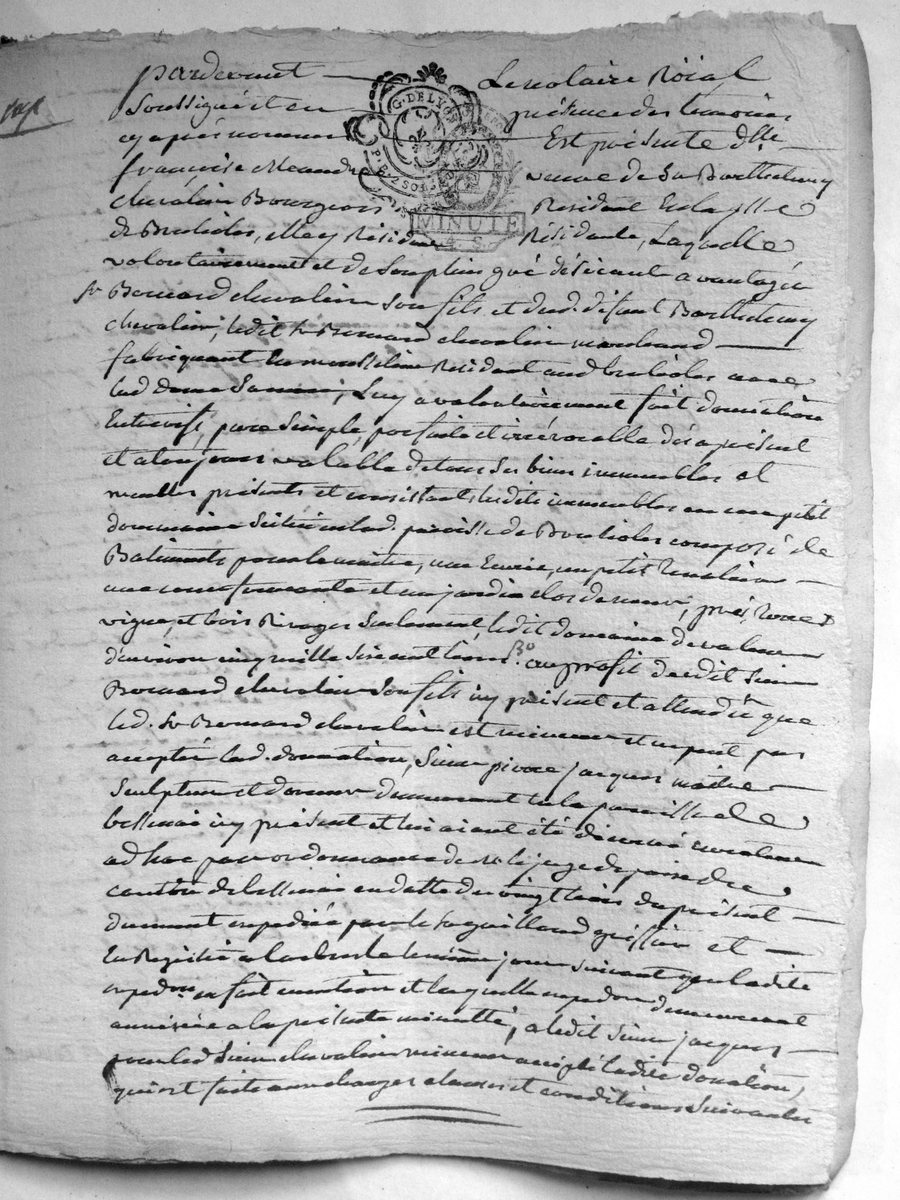 pardevant Le notaire Roial
soussigné et en présence des temoins
cy après nommés Est présente dlle
françoise veuve de Sr Barthelemy
chevalier Bourgeois Resident En la
G. DE LYON
MINUTE
4. S.
de Brulioles, elle y Résidante, Laquelle
volontairement et de son plein gré désirant avantagér
sr Bernard chevalier son fils et dud. défunt Barthelemy
chevalier, ledit sr Bernard chevalier marchand
fabriquant En mousseline Résidant aud. brulioles avec
lad. dame sa mere, Luy a volontairement fait donnation
Entrevifs, pure simple, parfaite et irrévocable dés a présent
et a toujours valable de tous ses biens immeubles et
meubles présents et consistants lesdits immeubles en un petit
domaine scitué en lad. paroisse de Brulioles composé de
Batiments pour le maitre, une Ecurie, un petit
une cour fermante et un jardin clos de murs, prés, terres
vigne, et bois Rivages Seulement, ledit domaine de valeur
d'environ cinq mille au profit dudit sieur
Bernard chevalier son fils icy présent et attendu que
led. sr Bernard chevalier est mineur et ne peut pas
accepter lad. donnation, sieur pierre jacques maitre
sculpteur et doreur demeurant en la paroisse de
bessenai icy présent et lui aiant été décerné curateur
ad hoc par ordonnance de mr le juge de paix du
canton de bessenai en datte du vingt trois du présent
dument expediée par le sr gaillard greffier et
En Registrée a larbresle le même jour suivant que ladite
expedon. en fait mention et laquelle expedon. demeurera
annéxée a la présente minutte, a ledit sieur jacques
pour led. sieur chevalier mineur accepté ladite donation,
qui est faite aux charges clauses et conditions suivantes